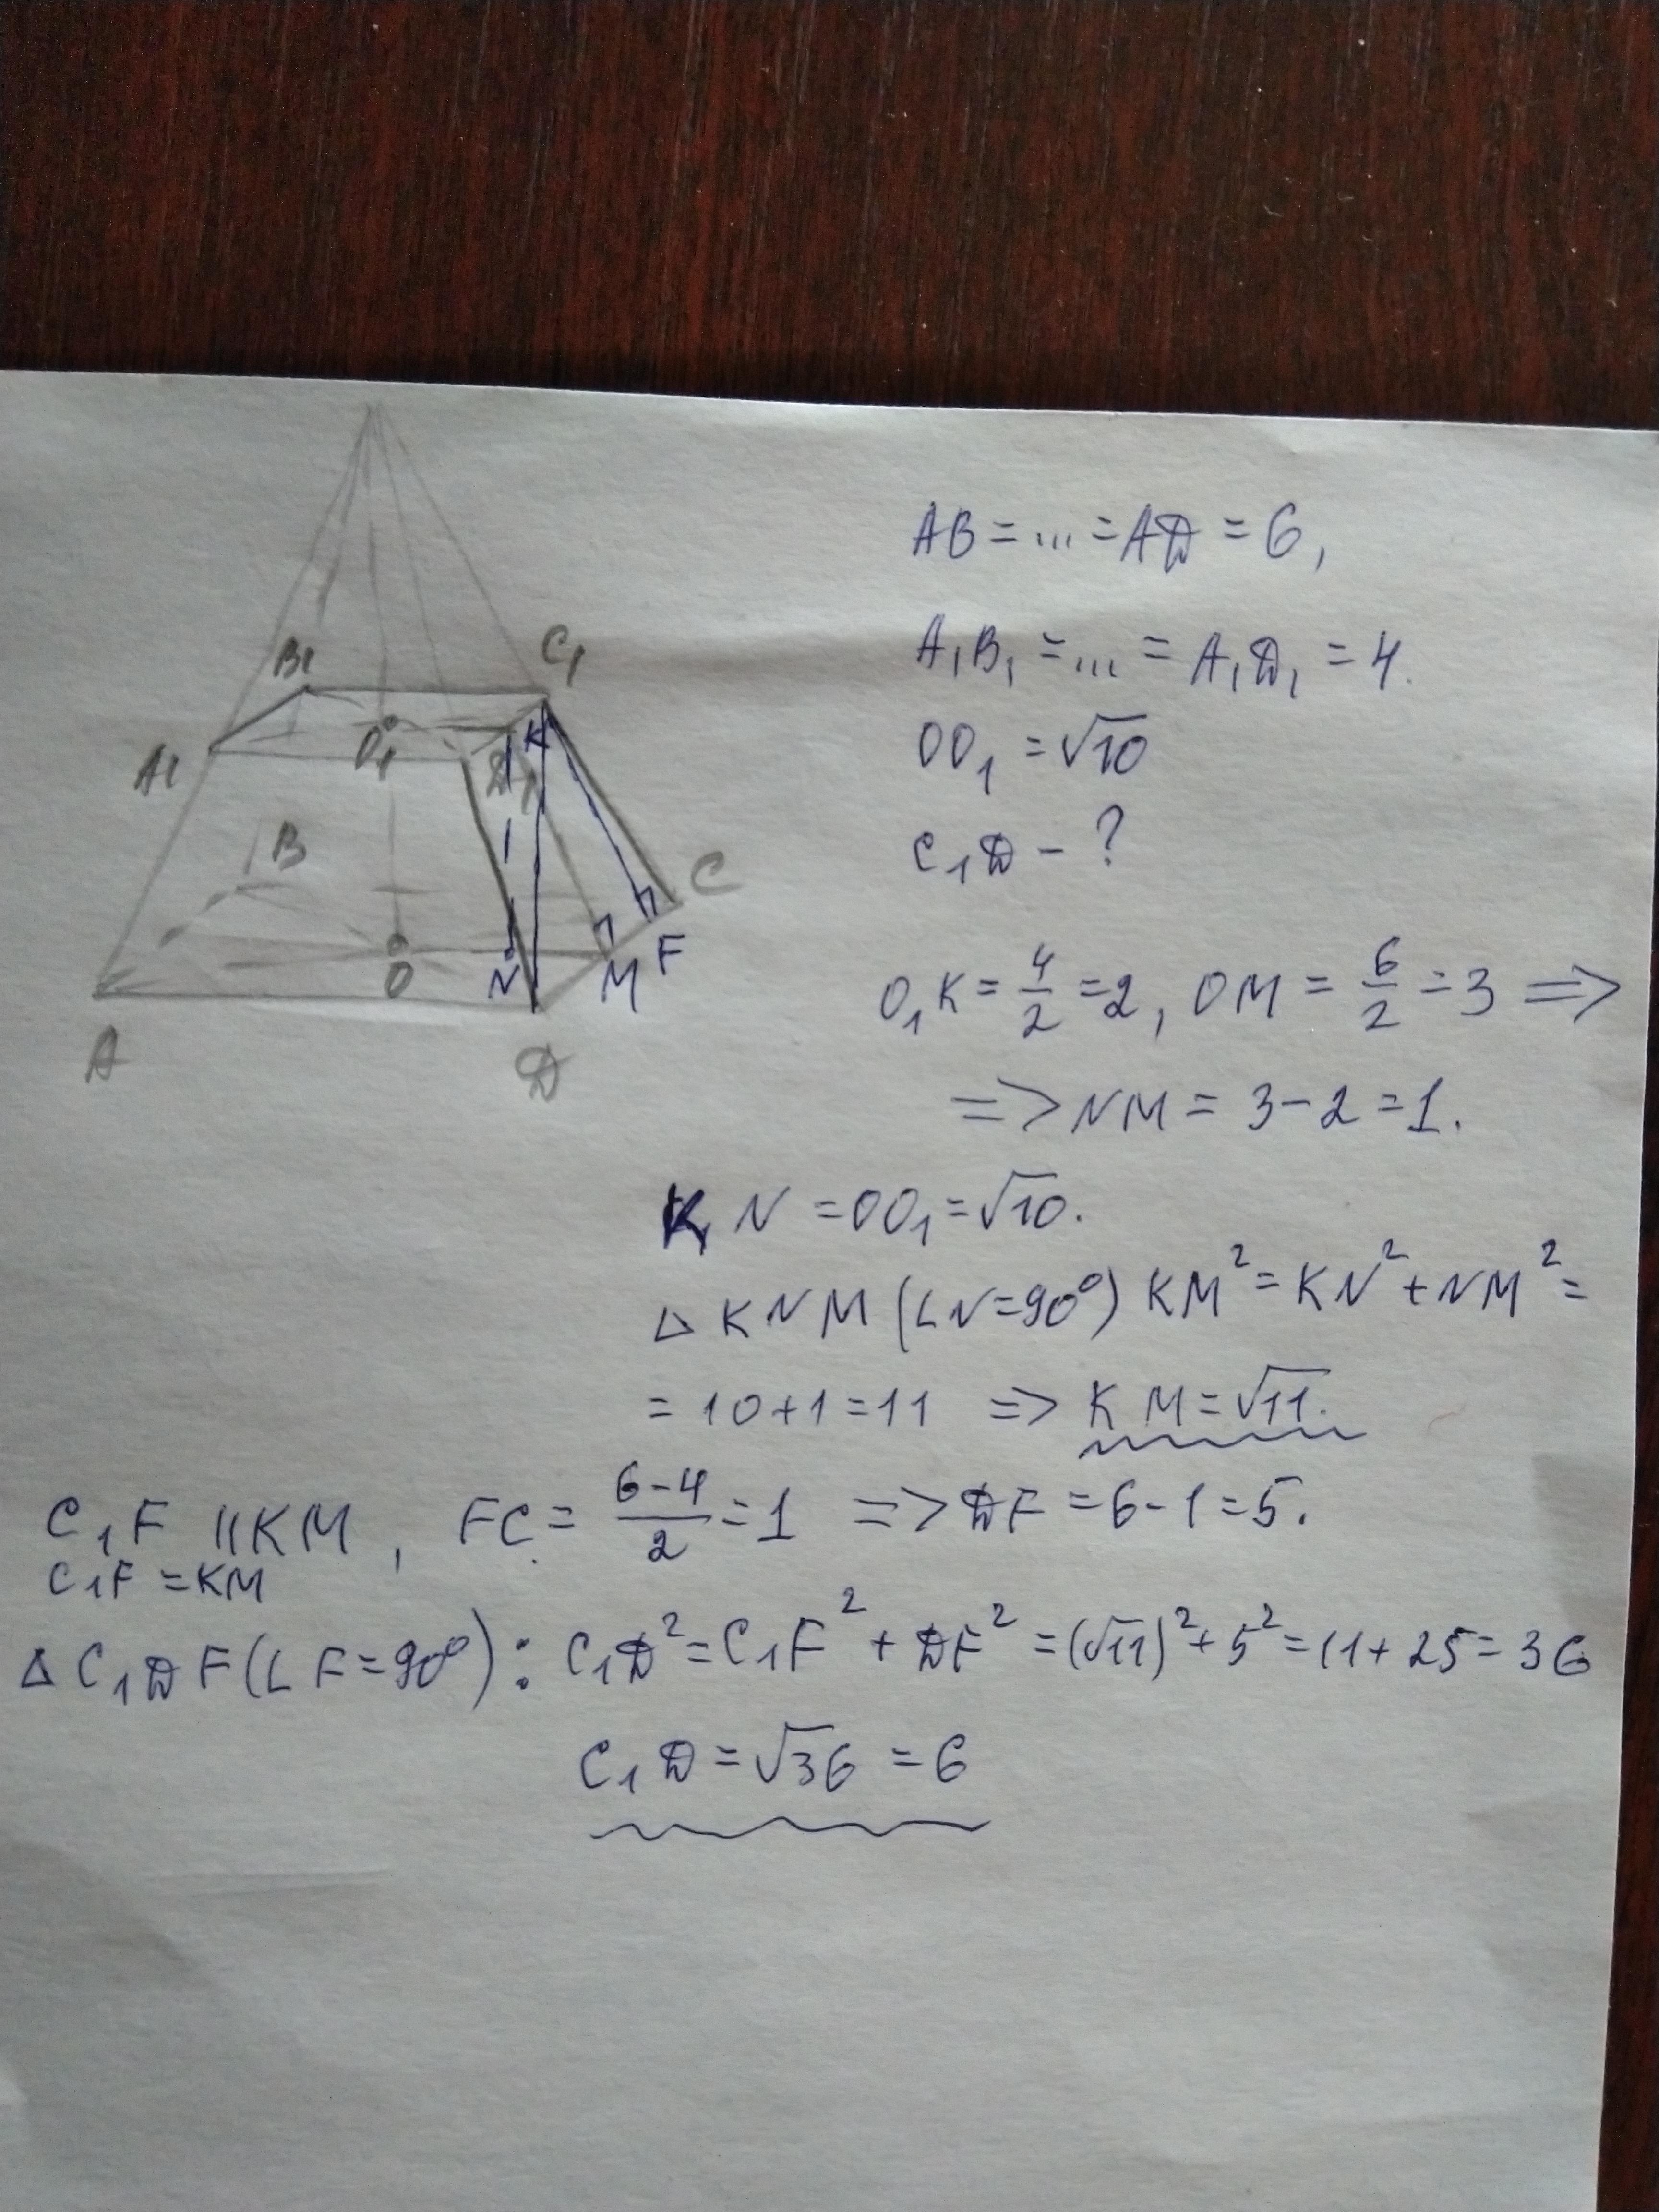 B1
C1
A1
O1
K
D1
B
C
O
N
M
F
A
D
AB = ... = AD = 6,
A₁B₁ = ... = A₁D₁ = 4.
OO₁ = √10
C₁D - ?
O₁K = 4/2 = 2, OM = 6/2 = 3 =>
=> NM = 3 - 2 = 1.
KN = OO₁ = √10.
Δ KNM (∠N = 90°) KM² = KN² + NM² =
= 10 + 1 = 11 => KM = √11.
C₁F || KM, FC = (6-4)/2 = 1 => DF = 6 - 1 = 5.
C₁F = KM
Δ C₁DF (∠F = 90°): C₁D² = C₁F² + DF² = (√11)² + 5² = 11 + 25 = 36
C₁D = √36 = 6